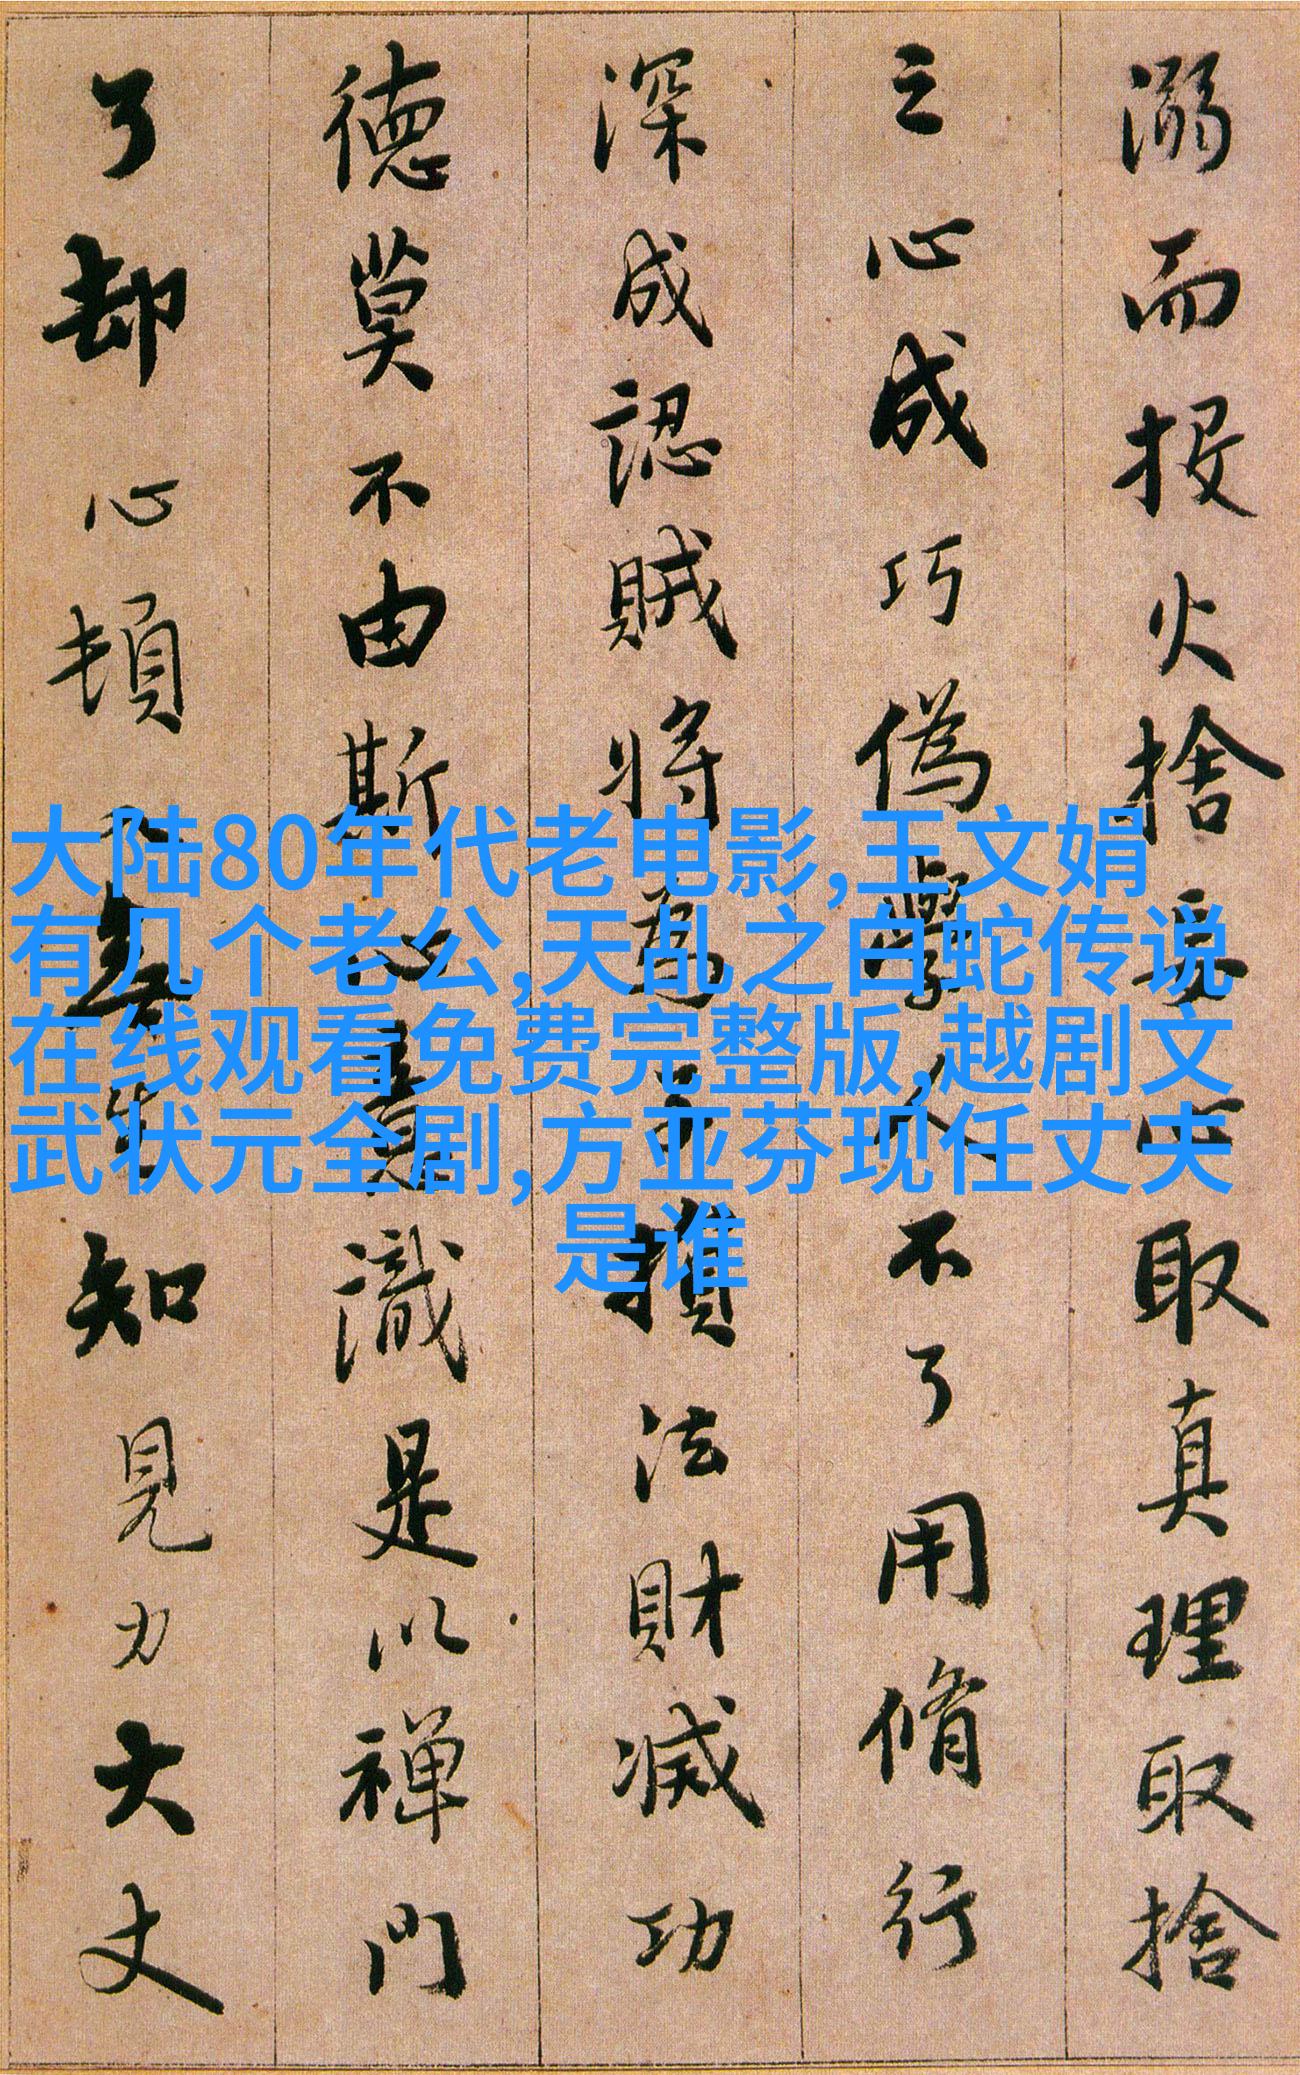 溺而投火捨妄心取真理取捨
之心成巧偽學人不了用脩行
深成認賊將為子損法財滅功
德莫不由斯心意識是以禪門
了却心頓入無生知見力大丈
大陆80年代老电影,王文娟
有几个老公,天乩之白蛇传说
在线观看免费完整版,越剧文
武状元全剧,方亚芬现任丈夫
是谁